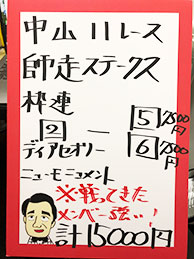 中山11レース
師走ステークス
枠連
5 7500円
2 ―
6 7500円
ディアセオリー
ニューモニュメント
※戦ってきた
メンバー強い!
計15000円